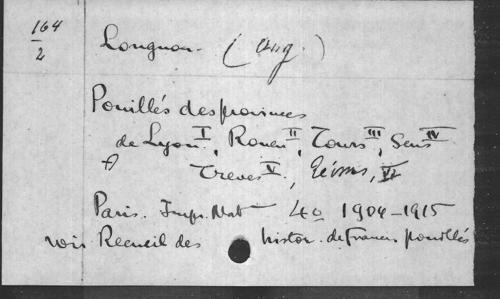 164
2
Longnon. (Aug.)
Pouillés des provinces
de Lyon I, Rouen II, Tours III, Sens IV
Trèves V, Reims, VI
Paris. Impr. Nat 4o 1904-1915
voir Recueil des histor. de France pouillés